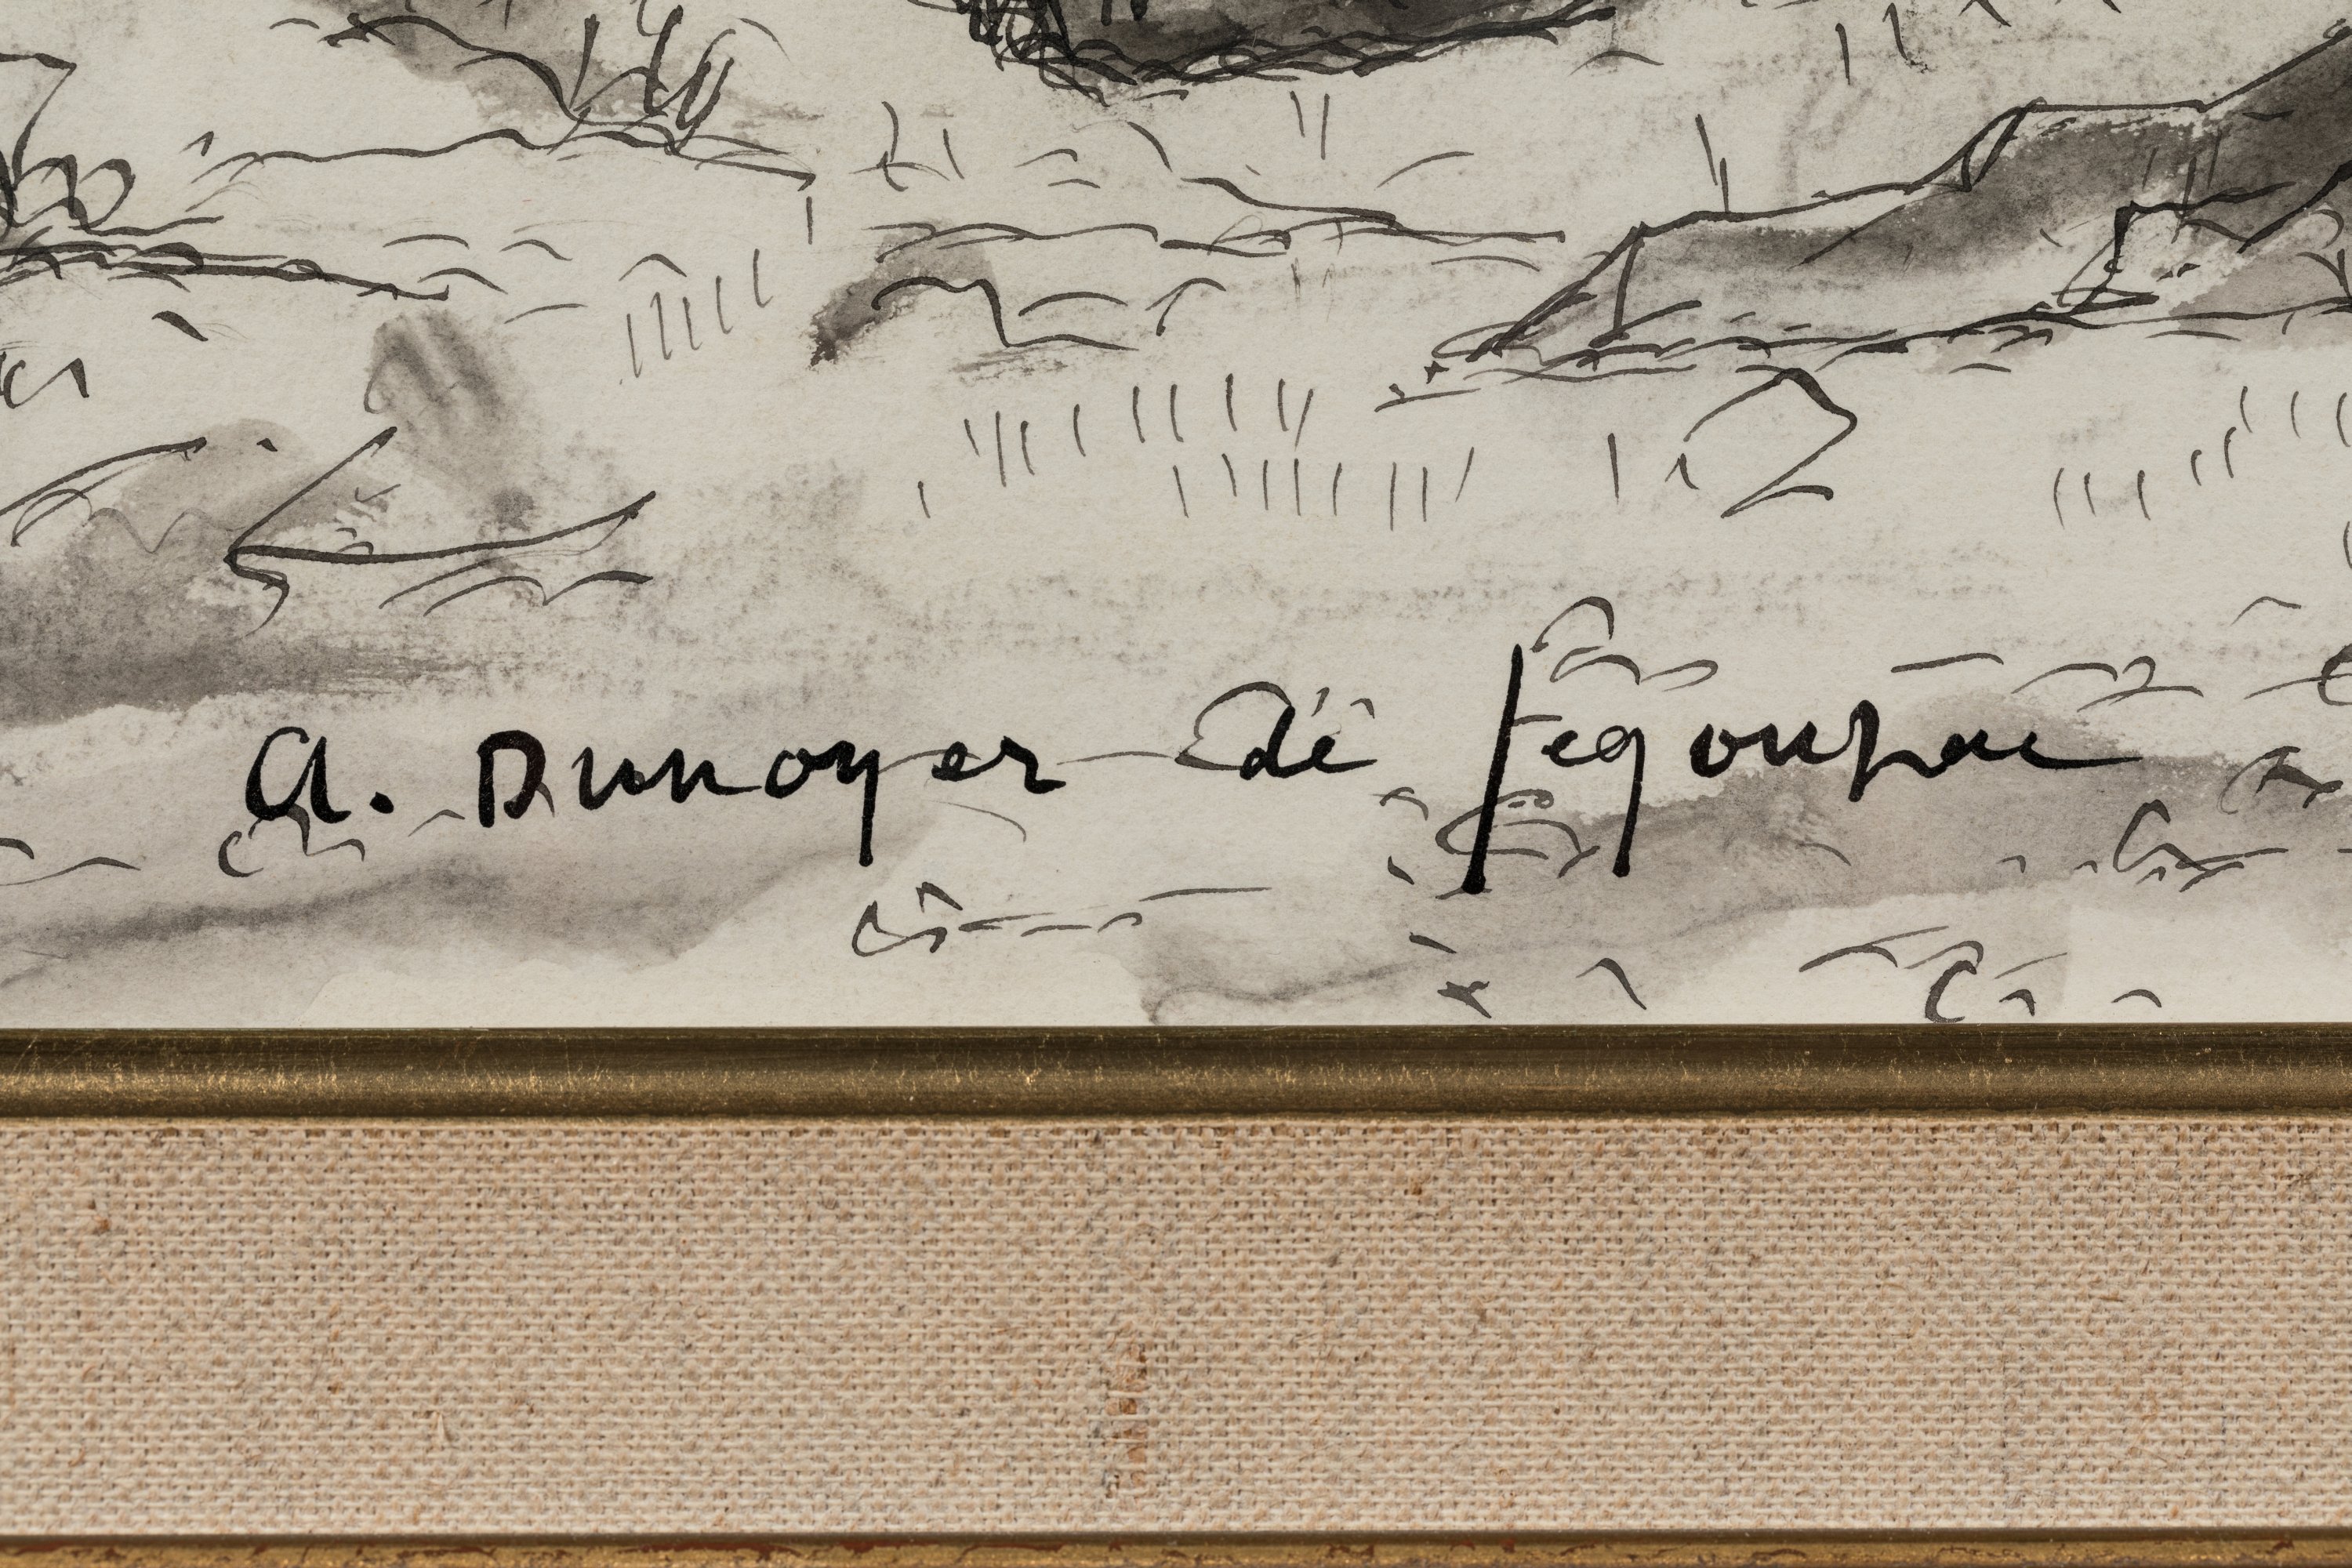 A. Dunoyer de Segonzac